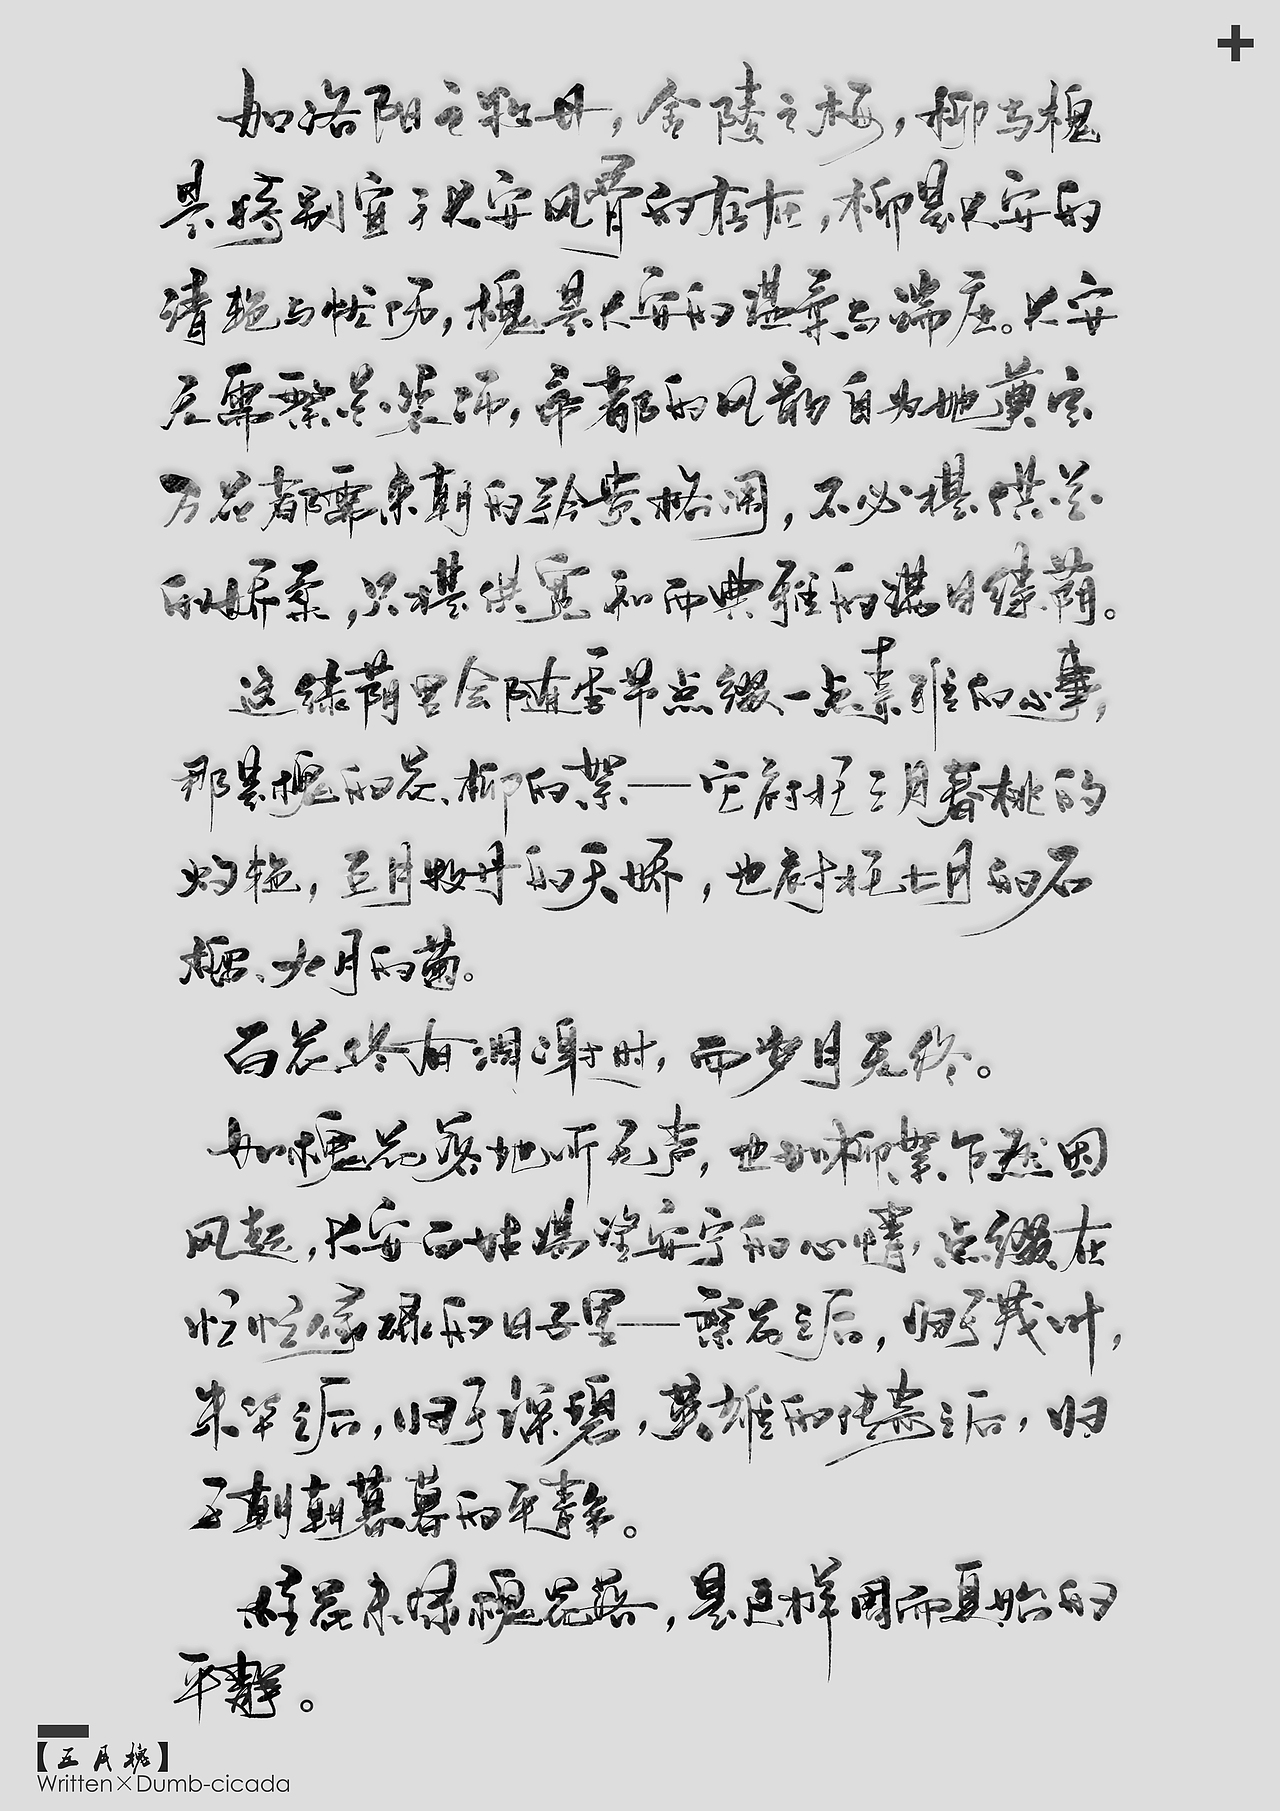 如洛阳之牡丹，金陵之梅，柳与槐
是特别宜于长安风骨的存在，柳是长安的
清艳与忧伤，槐是长安的温柔与端庄。长安
无需繁花装饰，帝都的风韵自为她奠定
万名都需来朝的矜贵格调，不必提供花
的娇柔，只提供宽和而典雅的满目绿荫。
这绿荫里会随季节点缀一点素雅的心事，
那是槐的花、柳的絮——它衬托三月春桃的
灼艳，五月牡丹的天娇，也衬托七月的石
榴、九月的菊。
百花终有凋谢时，而岁月无终。
如槐花落地听无声，也如柳絮乍然因
风起，长安百姓满望安宁的心情，点缀在
忙忙碌碌的日子里——繁花之后，归于茂叶，
朱华之后，归于深碧，英雄的传奇之后，归
于朝朝暮暮的平静。
桂花未绿槐花落，是这样周而复始的
平静。
【五月槐】
Written×Dumb-cicada